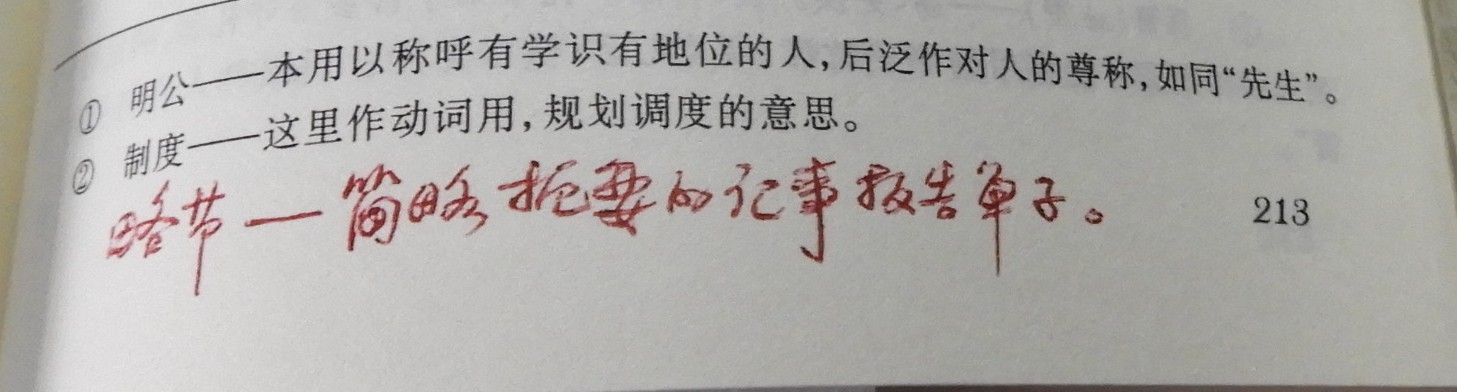 ① 明公——本用以称呼有学识有地位的人,后泛作对人的尊称,如同“先生”。
② 制度——这里作动词用,规划调度的意思。
略节—简略扼要的记事报告单子。
213